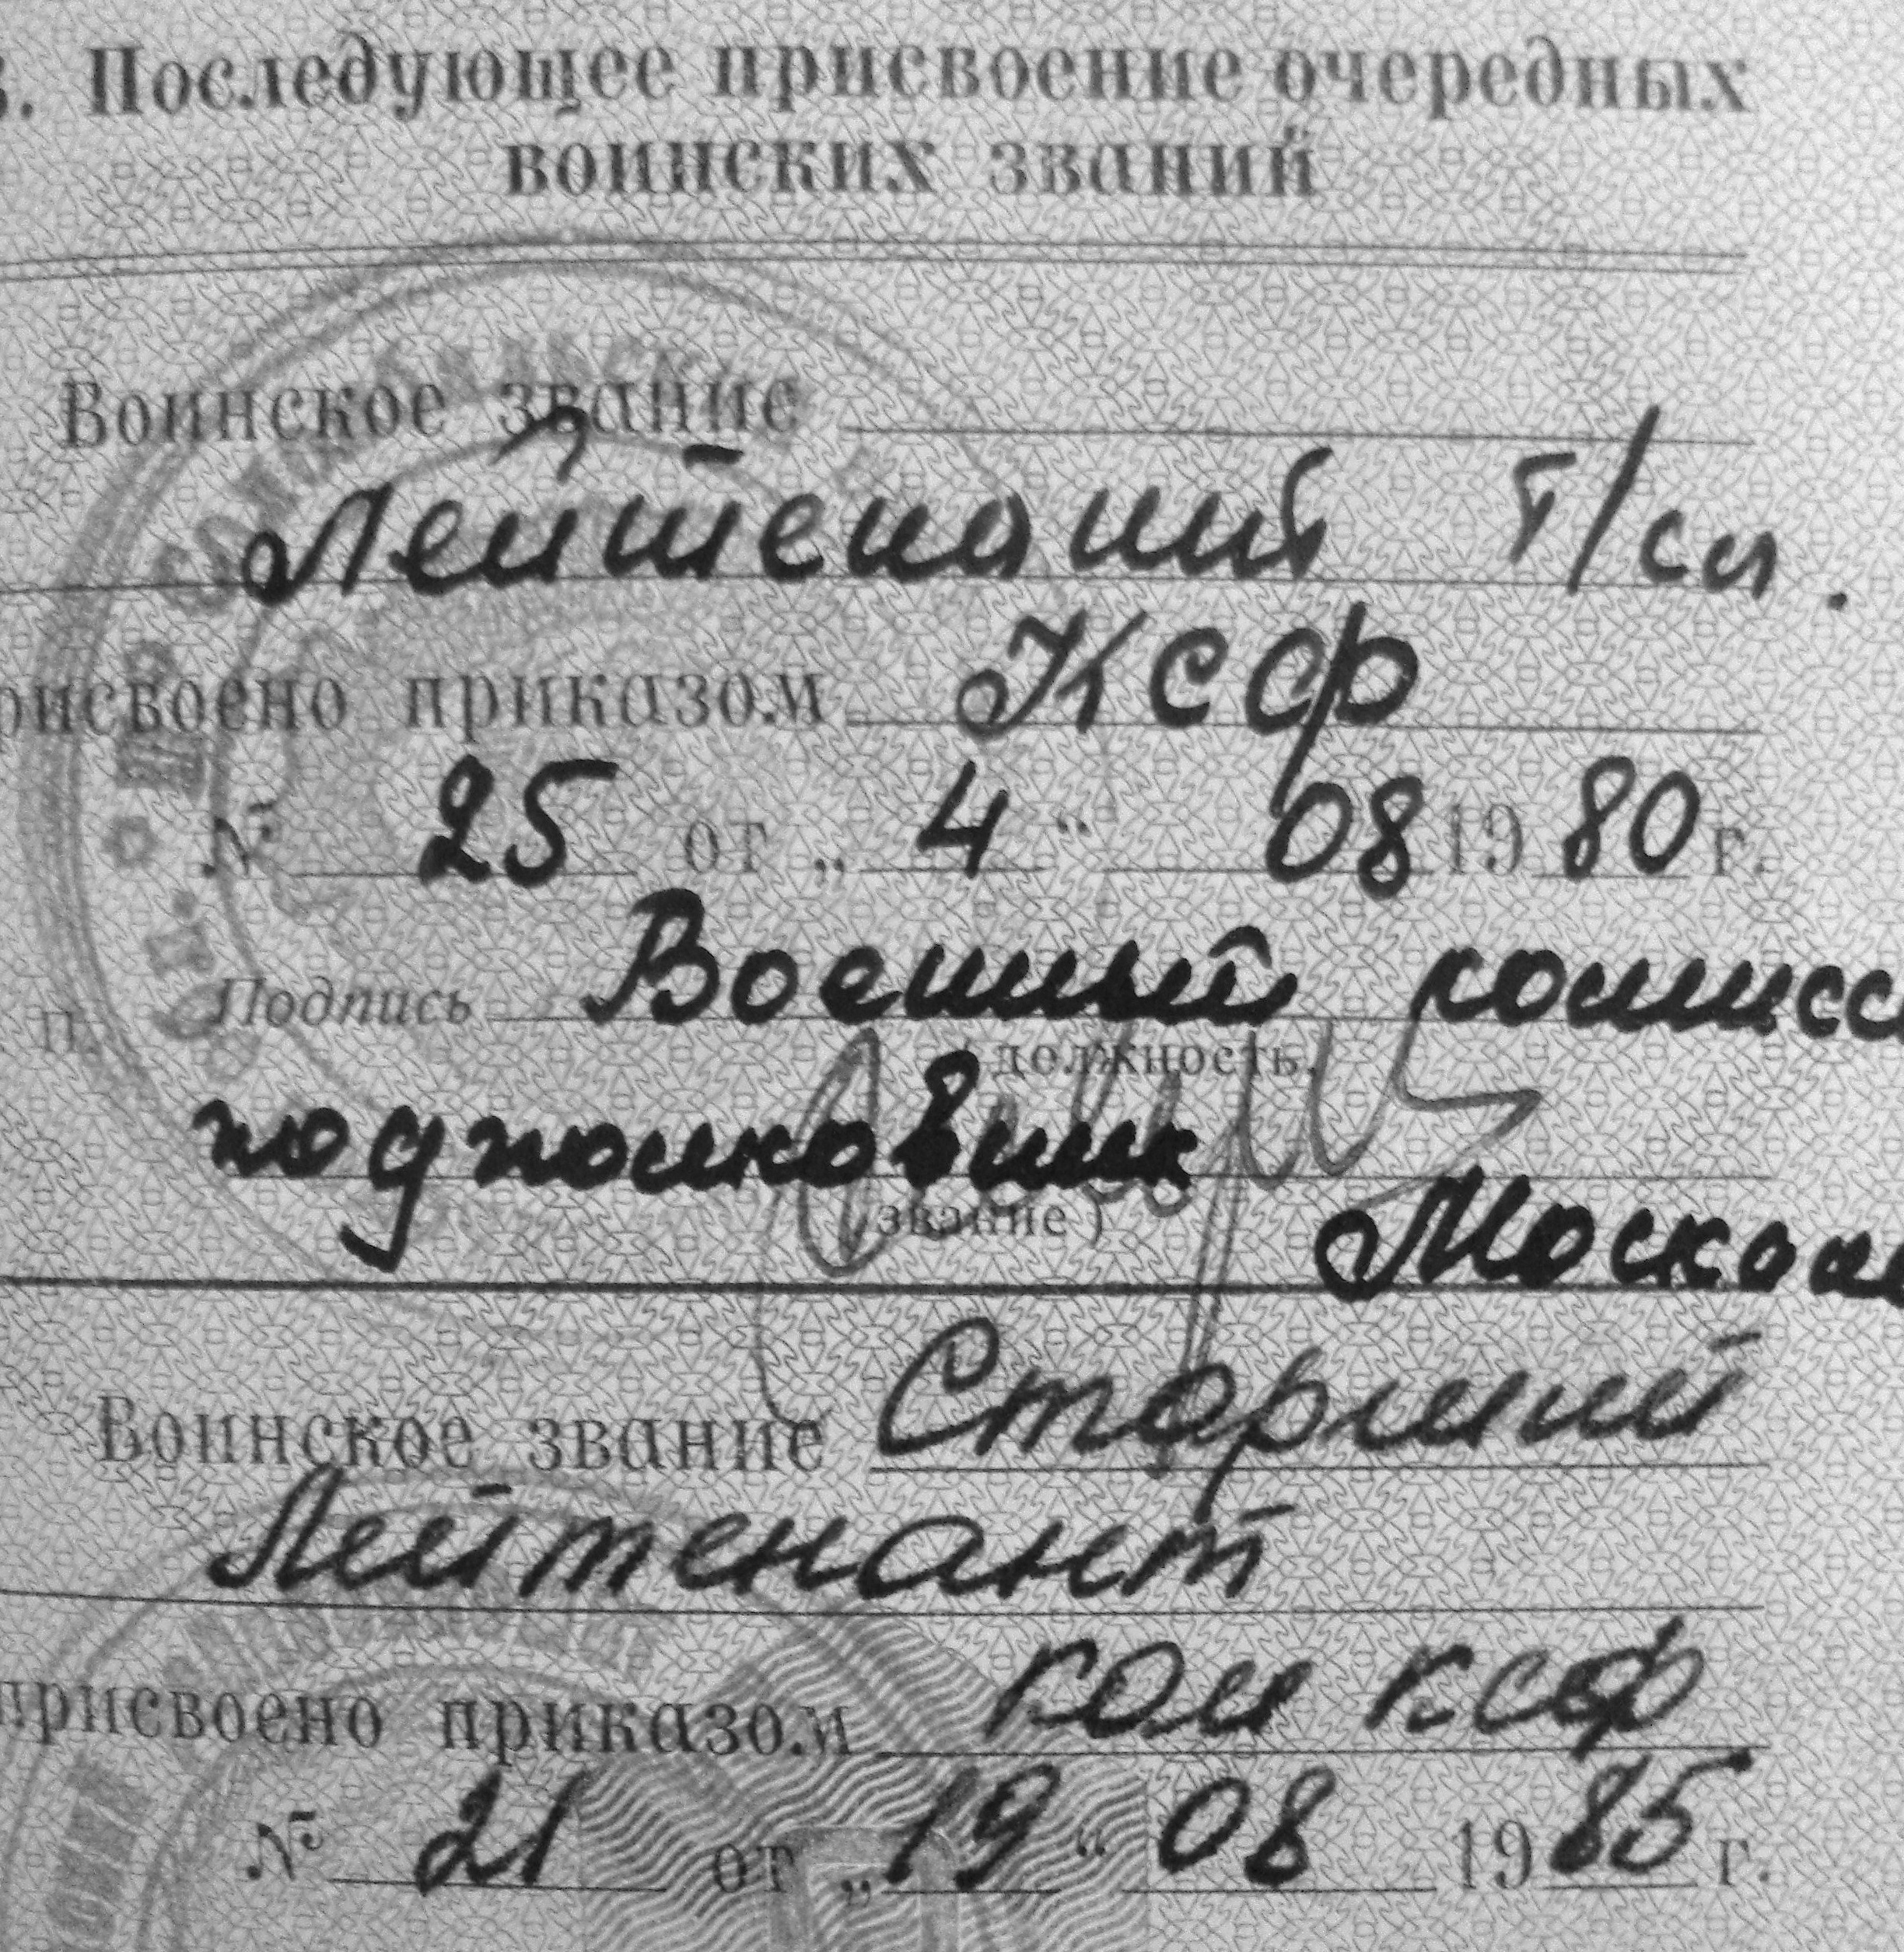 . Последующее присвоение очередных
воинских званий
Воинское звание
Лейтенант т/сл.
рисвоено приказом КСФ
№ 25 от „ 4 “ 08 19 80 г.
п. Подпись Военный комисс
должность,
подполковник
звание) Москоле
Воинское звание Старший
Лейтенант
присвоено приказом ком КСФ
№ 21 от „ 19 “ 08 19 85 г.